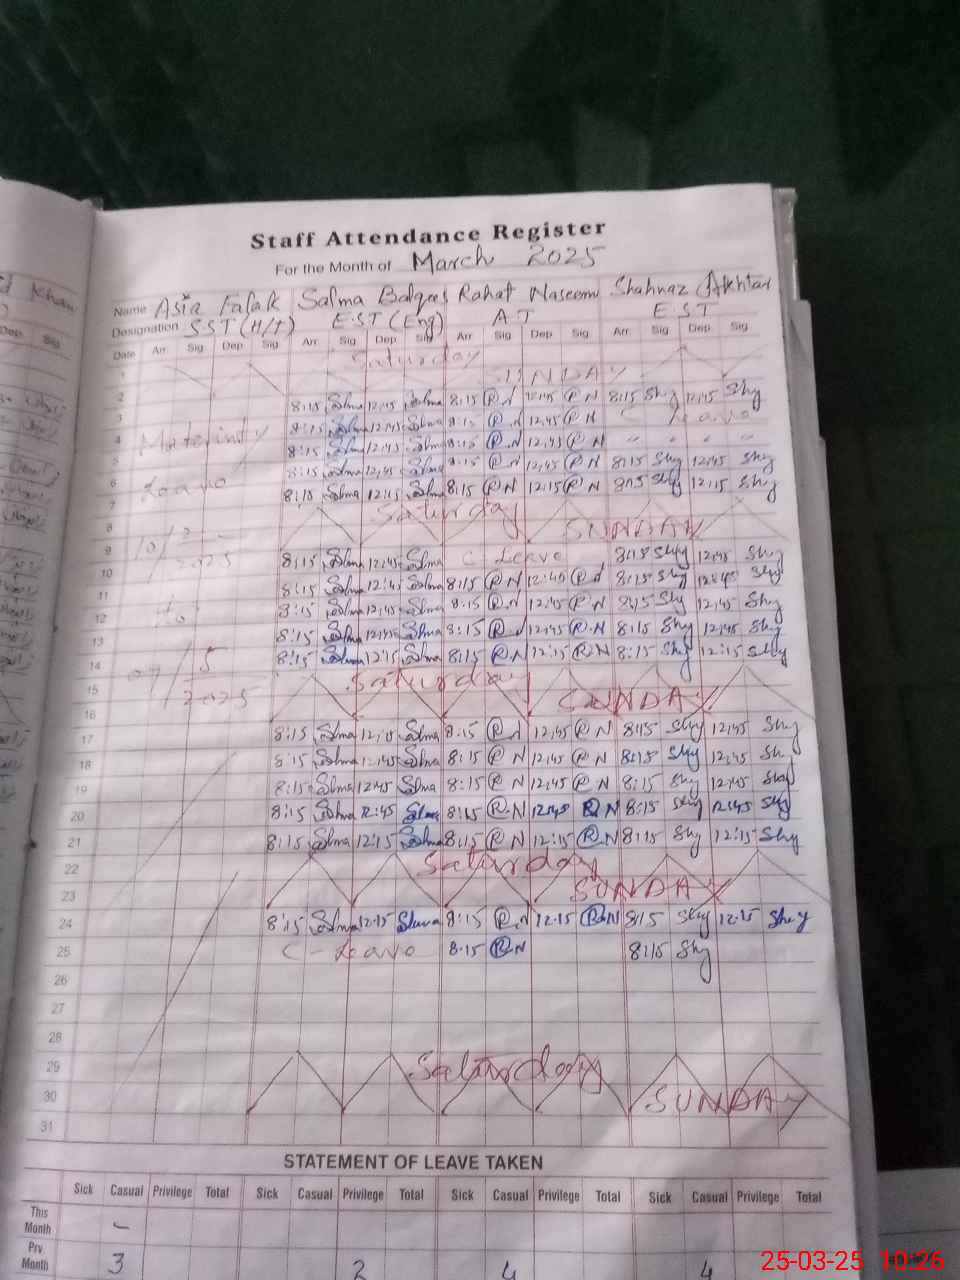 Staff Attendance Register
For the Month of March 2025
Name Asia Falak Salma Balqees Rahat Naseem Shahnaz Akhtar
Designation SST (H/T) E.ST (Eng) A.T E.S.T
Date Arr Sig Dep Sig Arr Sig Dep Sig Arr Sig Dep Sig Arr Sig Dep Sig
1 Saturday
2 SUNDAY
3 8:15 Salma 12:45 Salma 8:15 R.N 12:45 R N 8:15 Shy 12:45 Shy
4 Maternity 8:15 Salma 12:45 Salma 8:15 R.N 12,45 R N C Leave
5 8:15 Salma 12:45 Salma 8:15 R.N 12,45 R N " " " "
6 Leave 8:15 Salma 12,45 Salma 8:15 R N 12,45 R N 8:15 Shy 12:45 Shy
7 8:15 Salma 12:15 Salma 8:15 R N 12:15 R N 8:15 Shy 12:15 Shy
8 Saturday
9 2025 SUNDAY
10 8:15 Salma 12:45 Salma C-Leave 8:15 Shy 12:45 Shy
11 8:15 Salma 12:45 Salma 8:15 R N 12:45 R N 8:15 Shy 12:45 Shy
12 to 8:15 Salma 12,45 Salma 8:15 R.N 12,45 R.N 8:15 Shy 12,45 Shy
13 8:15 Salma 12,45 Salma 8:15 R.N 12,45 R.N 8:15 Shy 12,45 Shy
14 8:15 Salma 12:15 Salma 8:15 R.N 12:15 R.N 8:15 Shy 12:15 Shy
15 2025 Saturday
16 SUNDAY
17 8:15 Salma Salma 8:15 R.N 12,45 R N 8:15 Shy 12,45 Shy
18 8:15 Salma 12:45 Salma 8:15 R N 12,45 R N 8:15 Shy 12,45 Sh
19 8:15 Salma 12:45 Salma 8:15 R N 12,45 R N 8:15 Shy 12:45 Shy
20 8:15 Salma 12:45 Salma 8:15 R.N 12:45 R N 8:15 Shy 12:45 Shy
21 8:15 Salma 12:15 Salma 8:15 R.N 12:15 R.N 8:15 Shy 12:15 Shy
22 Saturday
23 SUNDAY
24 8:15 Salma 12:15 Salma 8:15 R.N 12:15 R.N 8:15 Shy 12:15 Shy
25 C-Leave 8:15 R.N 8:15 Shy
26
27
28
29 Saturday
30 SUNDAY
31
STATEMENT OF LEAVE TAKEN
Sick Casual Privilege Total Sick Casual Privilege Total Sick Casual Privilege Total Sick Casual Privilege Total
This Month –
Prv Month 3 2 4 4
25-03-25 10:26